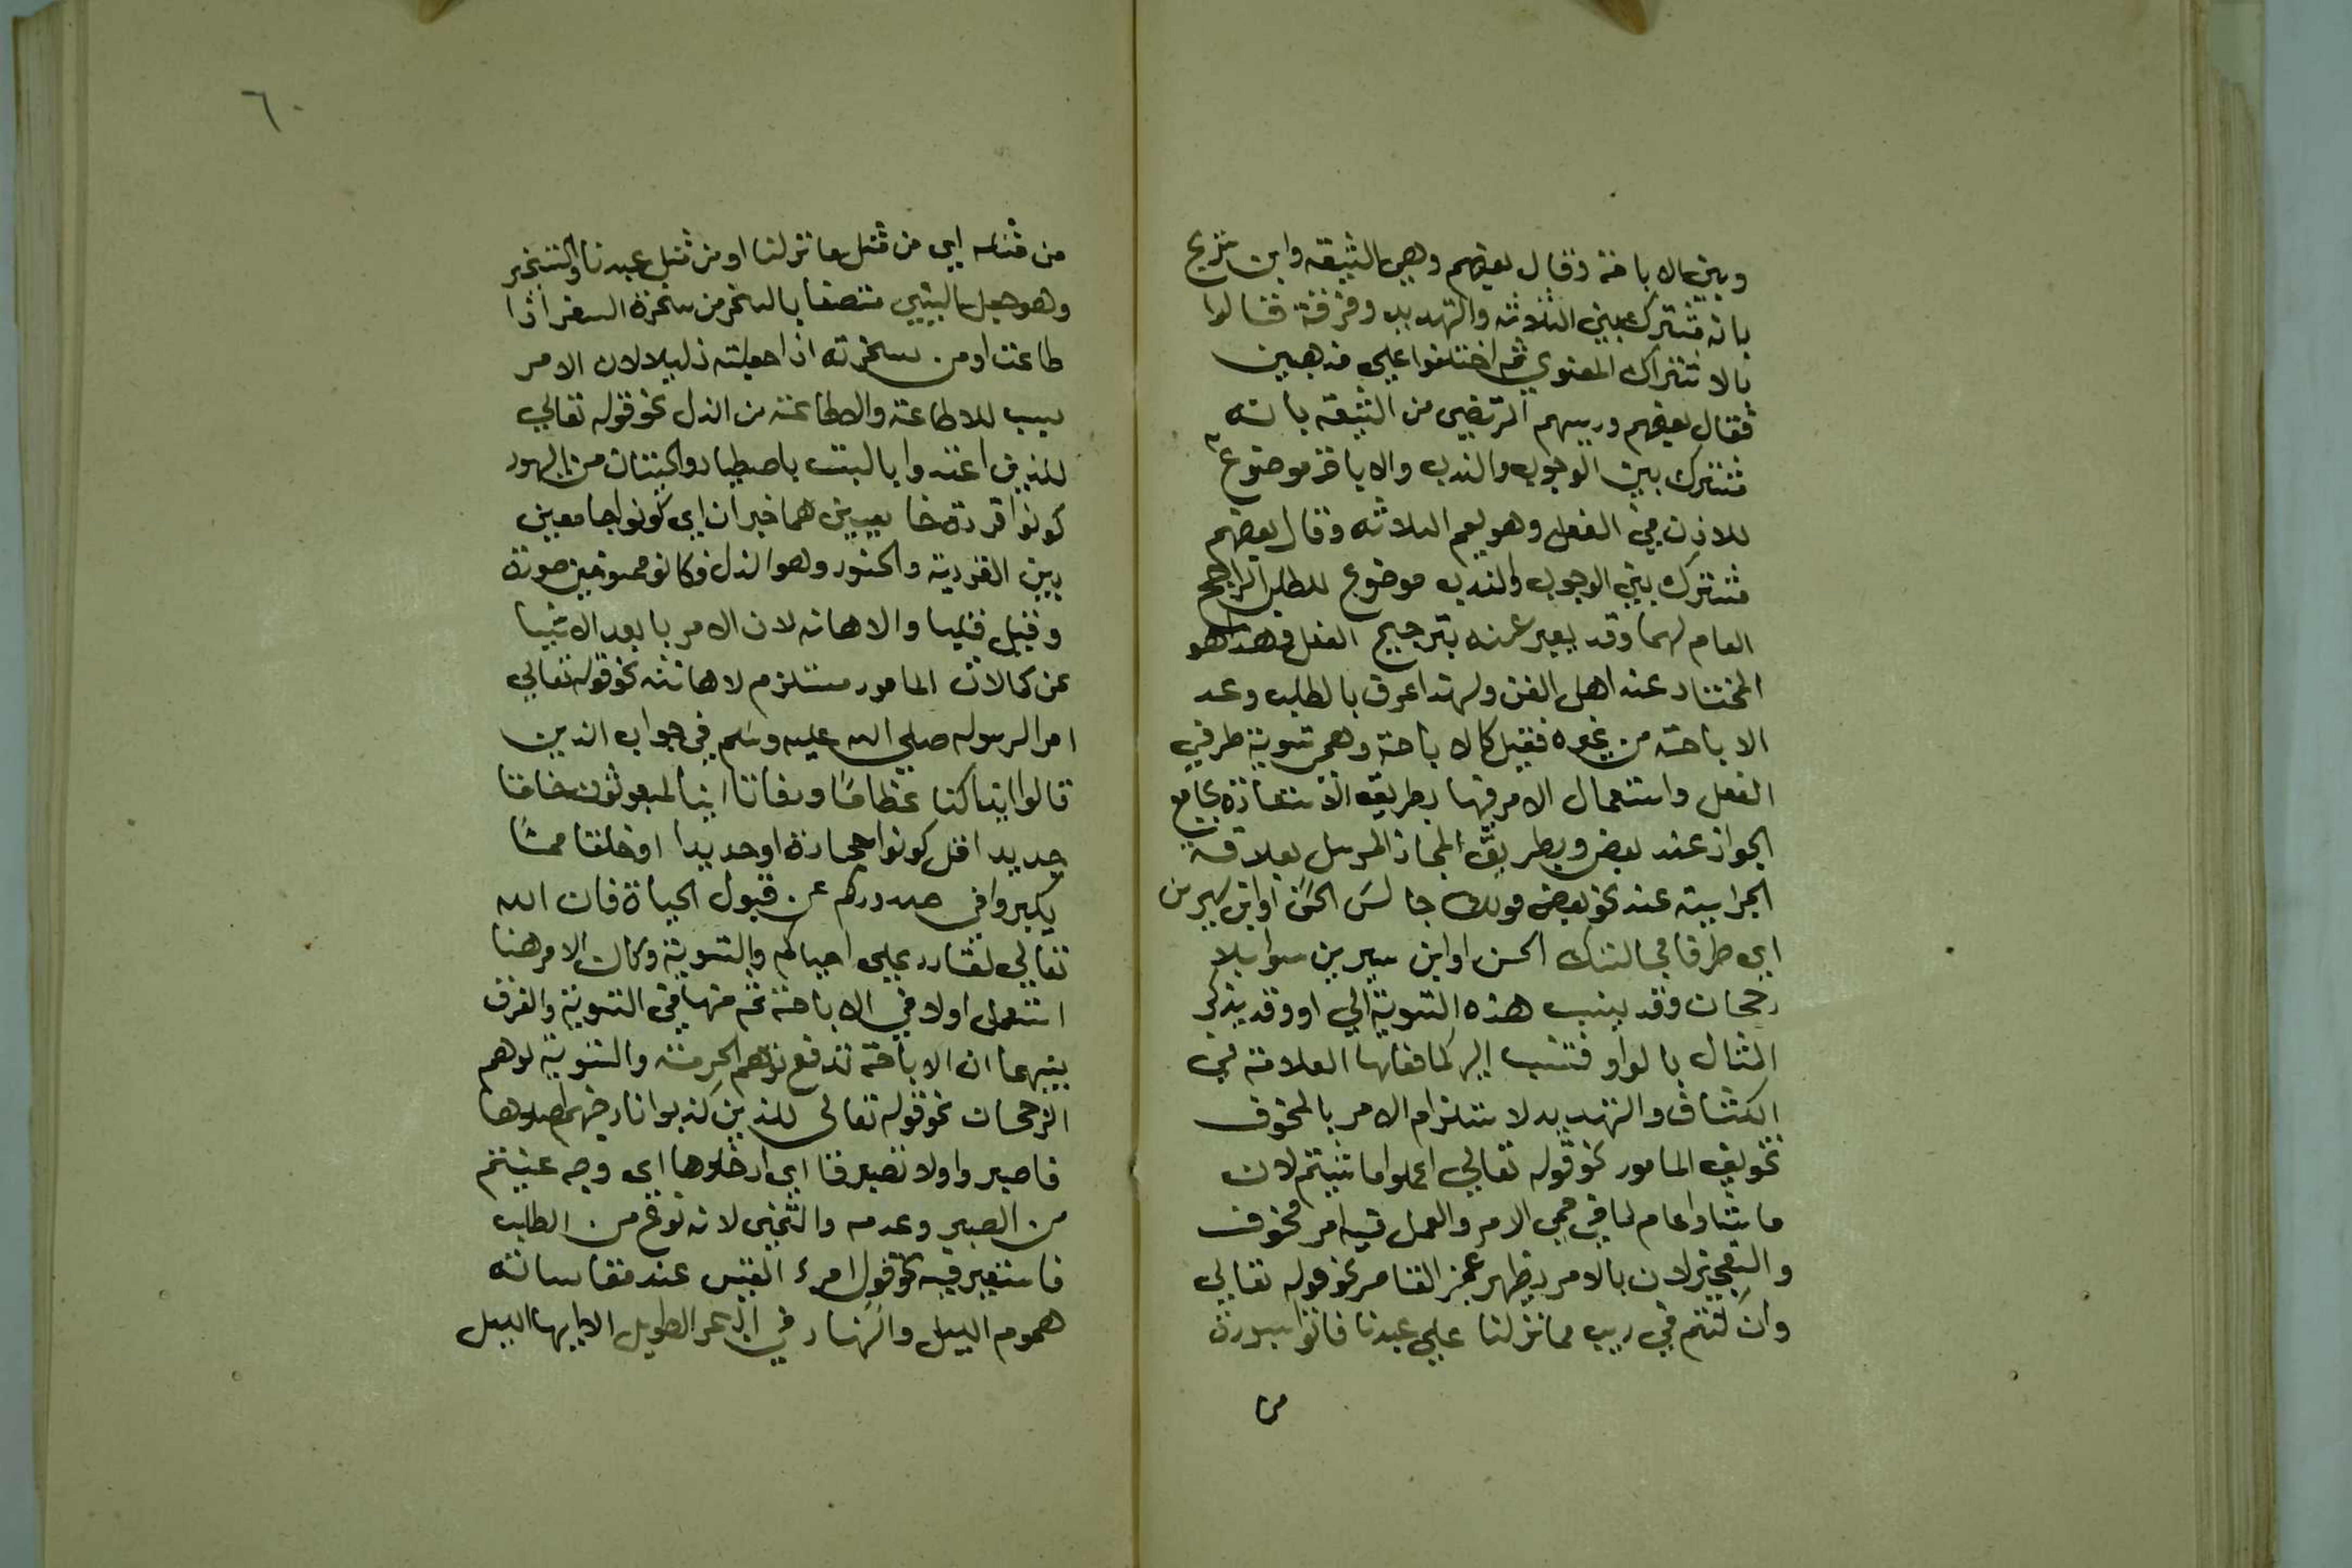 وبين الاباحة وقال بعضهم وهي الشيعة وابن شريح
بانه مشترك بين الثلاثة والتهديد وفرقة قالوا
بالاشتراك المعنوي ثم اختلفوا علي مذهبين
فقال بعضهم ورييسهم المرتضي من الشيعة بانه
مشترك بين الوجوب والندب والاباحة موضوع
للاذن في الفعل وهو يعم الثلاثه وقال بعضهم
مشترك بين الوجوب والندب موضوع للطلب الراجح
العام لهما وقد يعبر عنه بترجيح الفعل وهذا هو
المختار عند اهل الفن ولهذا عرف بالطلب وعد
الاباحة من غيره فقيل كالاباحة وهي تسوية طرفي
الفعل واستعمال الامر فيها بطريق الاستعارة بجامع
الجواز عند بعض وبطريق المجاز المرسل بعلاقة
الجزاييته عند نحو بعض قولك جالس الحسن او ابن سيرين
اي طرفا مجالستك الحسن او ابن سيرين سوا بلا
رجحان وقد ينسب هذه التسوية الي او وقد يذكر
المثال بالواو فتنسب اليه كما فعلها العلامة في
الكشاف والتهديد لاستلزام الامر بالمخوف
تخويف المامور نحو قوله تعالي اعملوا ما شيتم لان
ما شاوا عام لما في حمي الامر والعمل فيه امر مخوف
والتعجيز لان بالامر يظهر عجز القاصر نحو قوله تعالي
وان كنتم في ريب مما نزلنا علي عبدنا فاتوا بسورة
من
٦٠
من مثله اي من مثل ما نزلنا او من مثل عبدنا والتسخير
وهو جعل الشيي متصفا بالسخر من سخرة السفر اذا
طاعت او من سخرته اذا جعلته ذليلا لان الامر
سبب للاطاعة والاطاعة من الذل نحو قوله تعالي
للذين اعتدوا بالسبت باصطياد الحيتان من اليهود
كونوا قردة خاسيين هما خبران اي كونوا جامعين
بين القردية والخسو وهو الذل فكانوا ممسوخين صورة
وقيل قلبا والاهانه لان الامر بابعد الاشيا
عن كمالات المامور مستلزم لاهانته نحو قوله تعالي
امر الرسوله صلي الله عليه وسلم في جواب الذين
قالوا ايذا كنا عظاما ورفاتا اينا لمبعوثون خلقا
جديدا قل كونوا حجارة او حديدا او خلقا مما
يكبر في صدوركم عن قبول الحياة فان الله
تعالي لقادر علي احياكم والتسوية وكان الامر هنا
استعمل اولا في الاباحة ثم منها في التسوية والفرق
بينهما ان الاباحة تدفع توهم الحرمة والتسوية توهم
الرجحان نحو قوله تعالي للذين كذبوا نار جهنم اصلوها
فاصبروا ولا تصبروا اي ادخلوها اي وجه عنيتم
من الصبر وعدمه والتمني لانه نوع من الطلب
فاستعير فيه نحو قول امرء القيس عند مقاساته
هموم الليل والنهار في الدهر الطويل الا ايها الليل